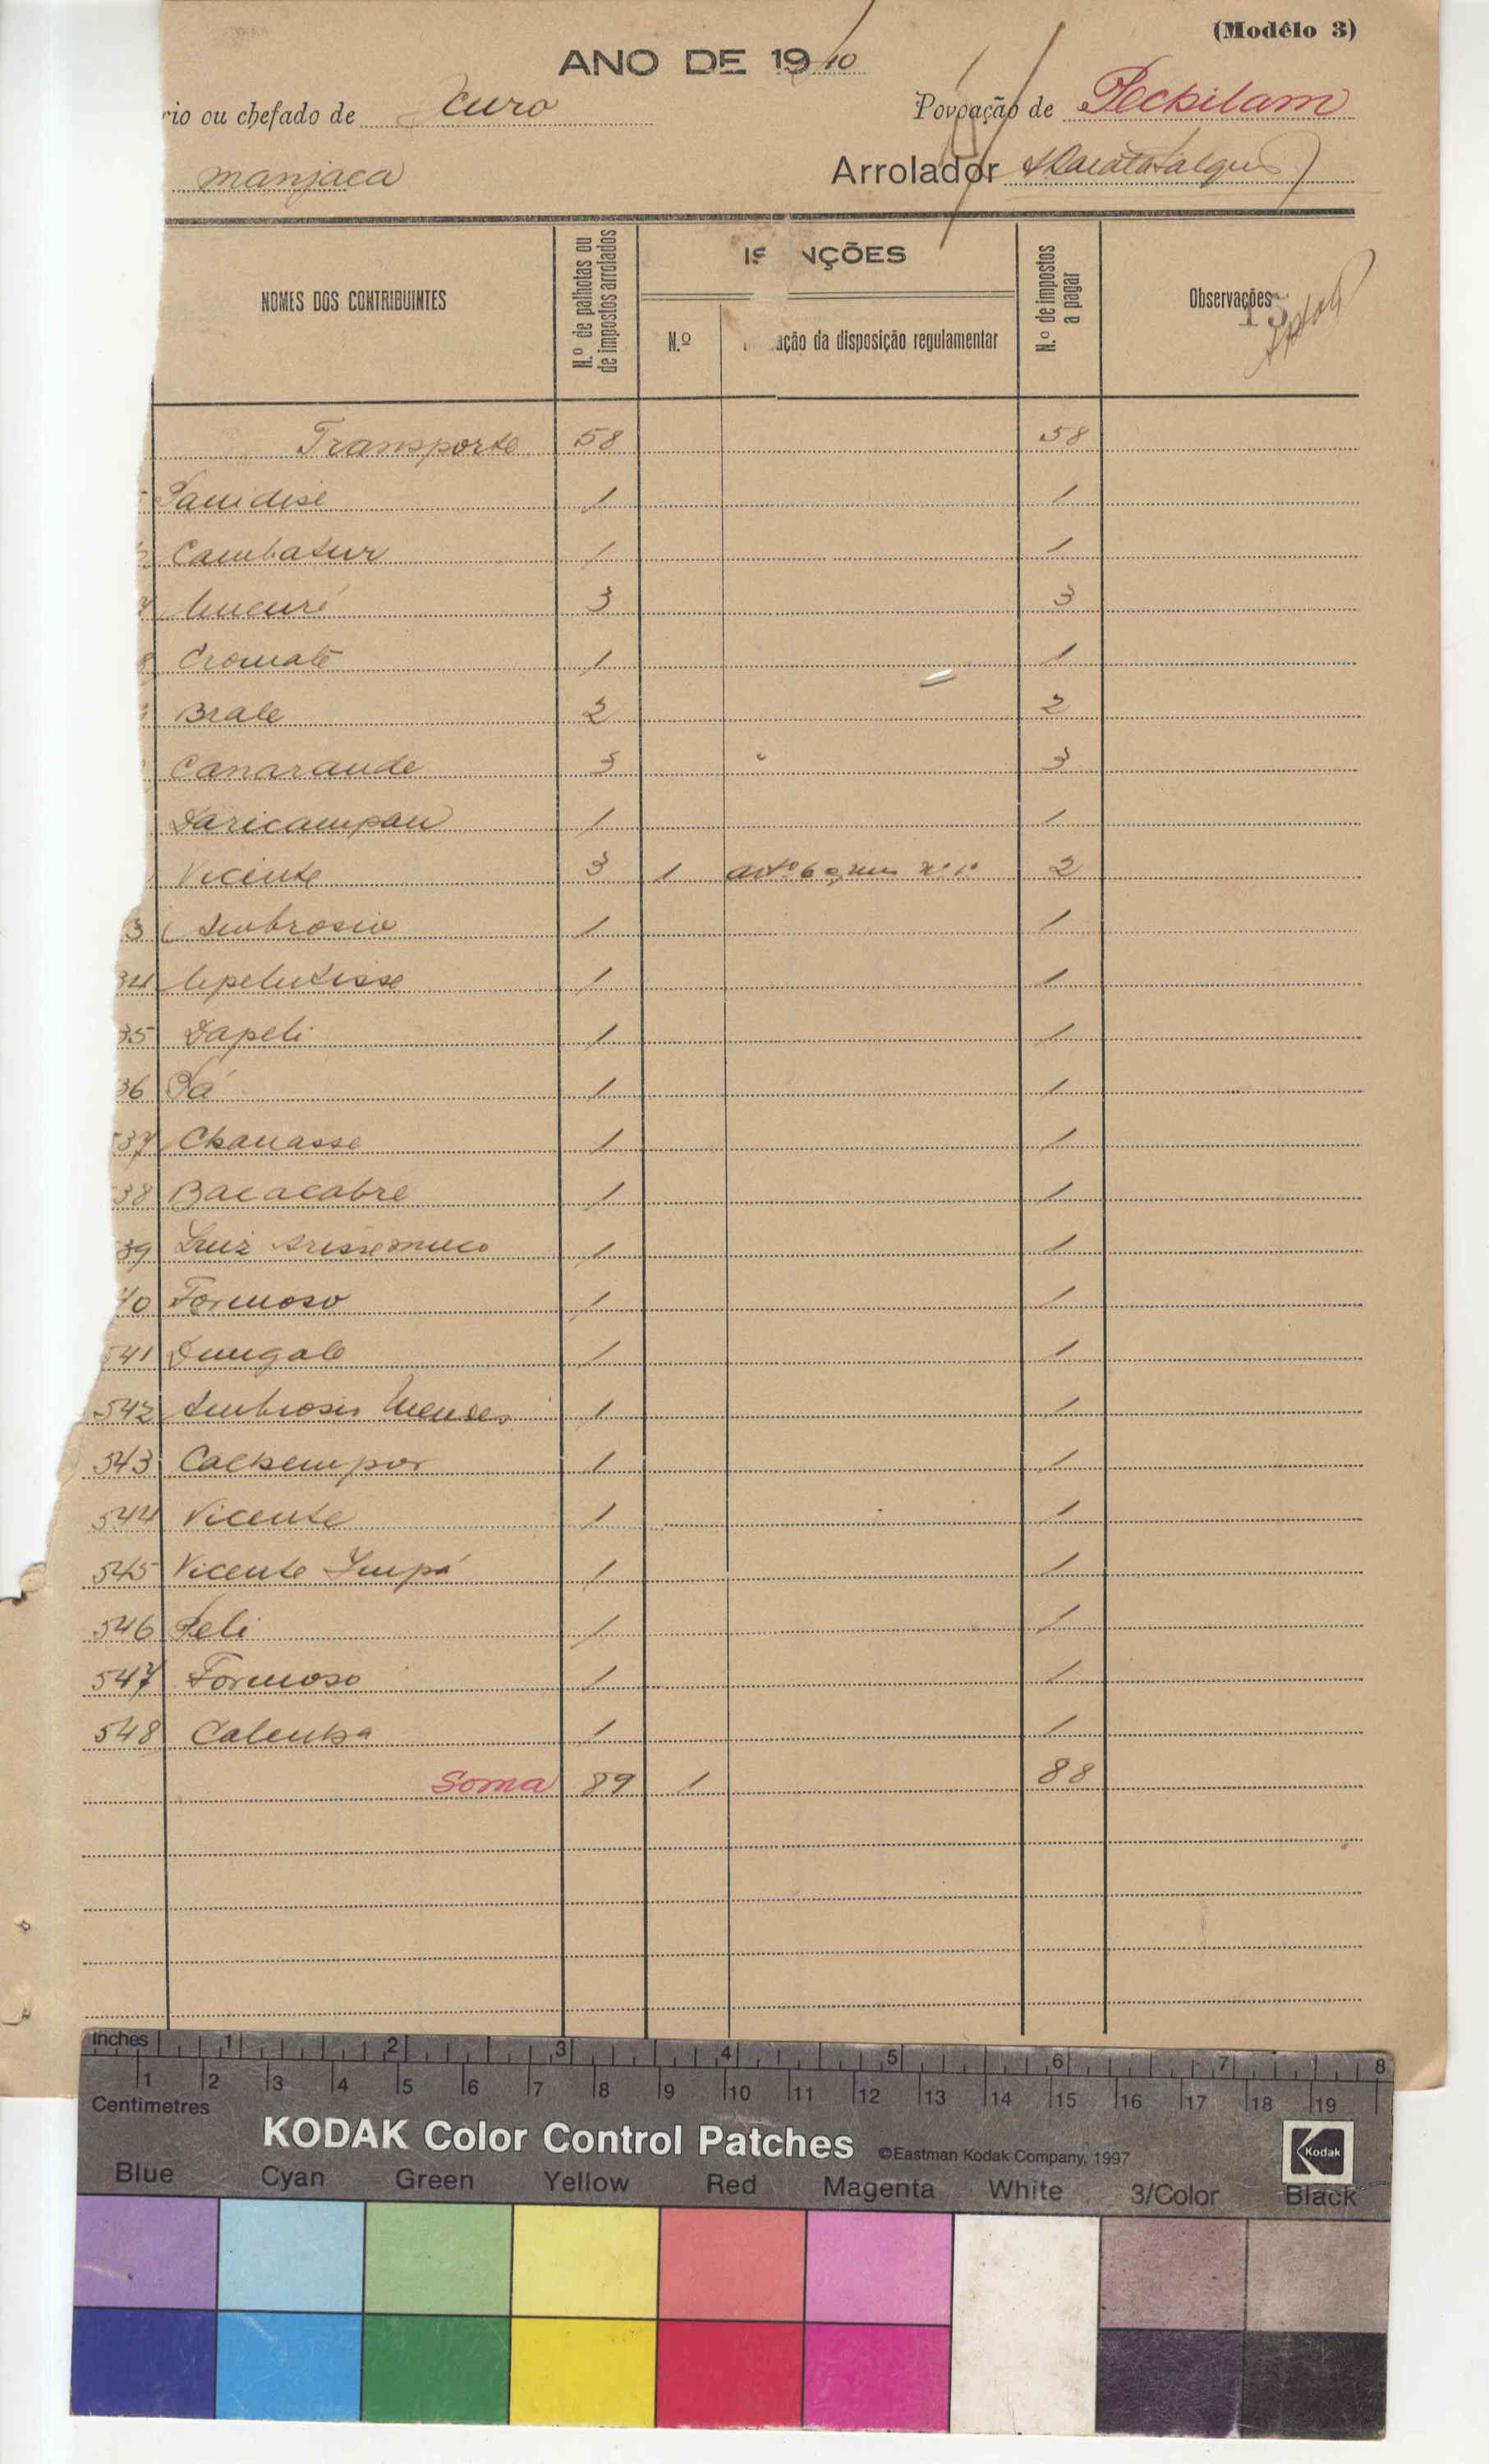 (Modêlo 3)
ANO DE 1940
rio ou chefado de Curo Povoação de Peckilam
manjaca Arrolador
NOMES DOS CONTRIBUINTES N.º de palhotas ou de impostos arrolados IS NÇÕES N.º ação da disposição regulamentar N.º de impostos a pagar Observações
15
Transporte 58 58
1 1
Cambatur 1 1
7 3 3
8 Cromate 1 1
Brale 2 2
Canarande 3 3
Daricampan 1 1
Vicente 3 1 artº 6 nº 1º 2
3 Ambrosio 1 1
34 Upelutisse 1 1
35 Dapeli 1 1
36 Pá 1 1
537 Chanasse 1 1
538 Bacacabre 1 1
39 Luiz 1 1
40 Formoso 1 1
541 Dungale 1 1
542 Ambrosio Mendes 1 1
543 Cacksempor 1 1
544 Vicente 1 1
545 Vicente Impá 1 1
546 Peli 1 1
547 Formoso 1 1
548 Calenka 1 1
Soma 89 1 88
Inches 1 2 3 4 5 6 7 8
1 2 3 4 5 6 7 8 9 10 11 12 13 14 15 16 17 18 19
Centimetres
KODAK Color Control Patches ©Eastman Kodak Company, 1997 Kodak
Blue Cyan Green Yellow Red Magenta White 3/Color Black